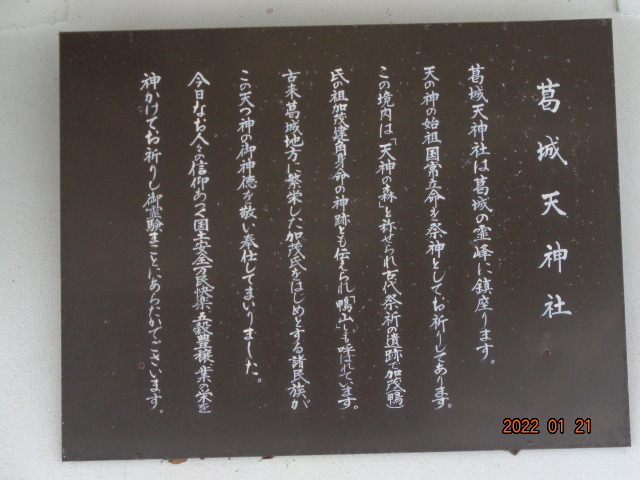 葛城天神社
葛城天神社は葛城の霊峰に鎮座ります。
天の神の始祖国常立命を祭神としてお祈りしてあります。
この境内は「天神の森」と称せられ古代祭祈の遺跡で加茂(鴨)
氏の祖加茂建角身命の神跡とも伝えられ「鴨山」とも呼ばれています。
古来葛城地方に繁栄した加茂氏をはじめとする諸民族が
この天つ神の御神徳を敬い奉仕してまいりました。
今日なお人々の信仰あつく国土安全万民楽五穀豊穣業の栄を
神かけてお祈りし御霊験まことにあらたかでございます。
2022 01 21